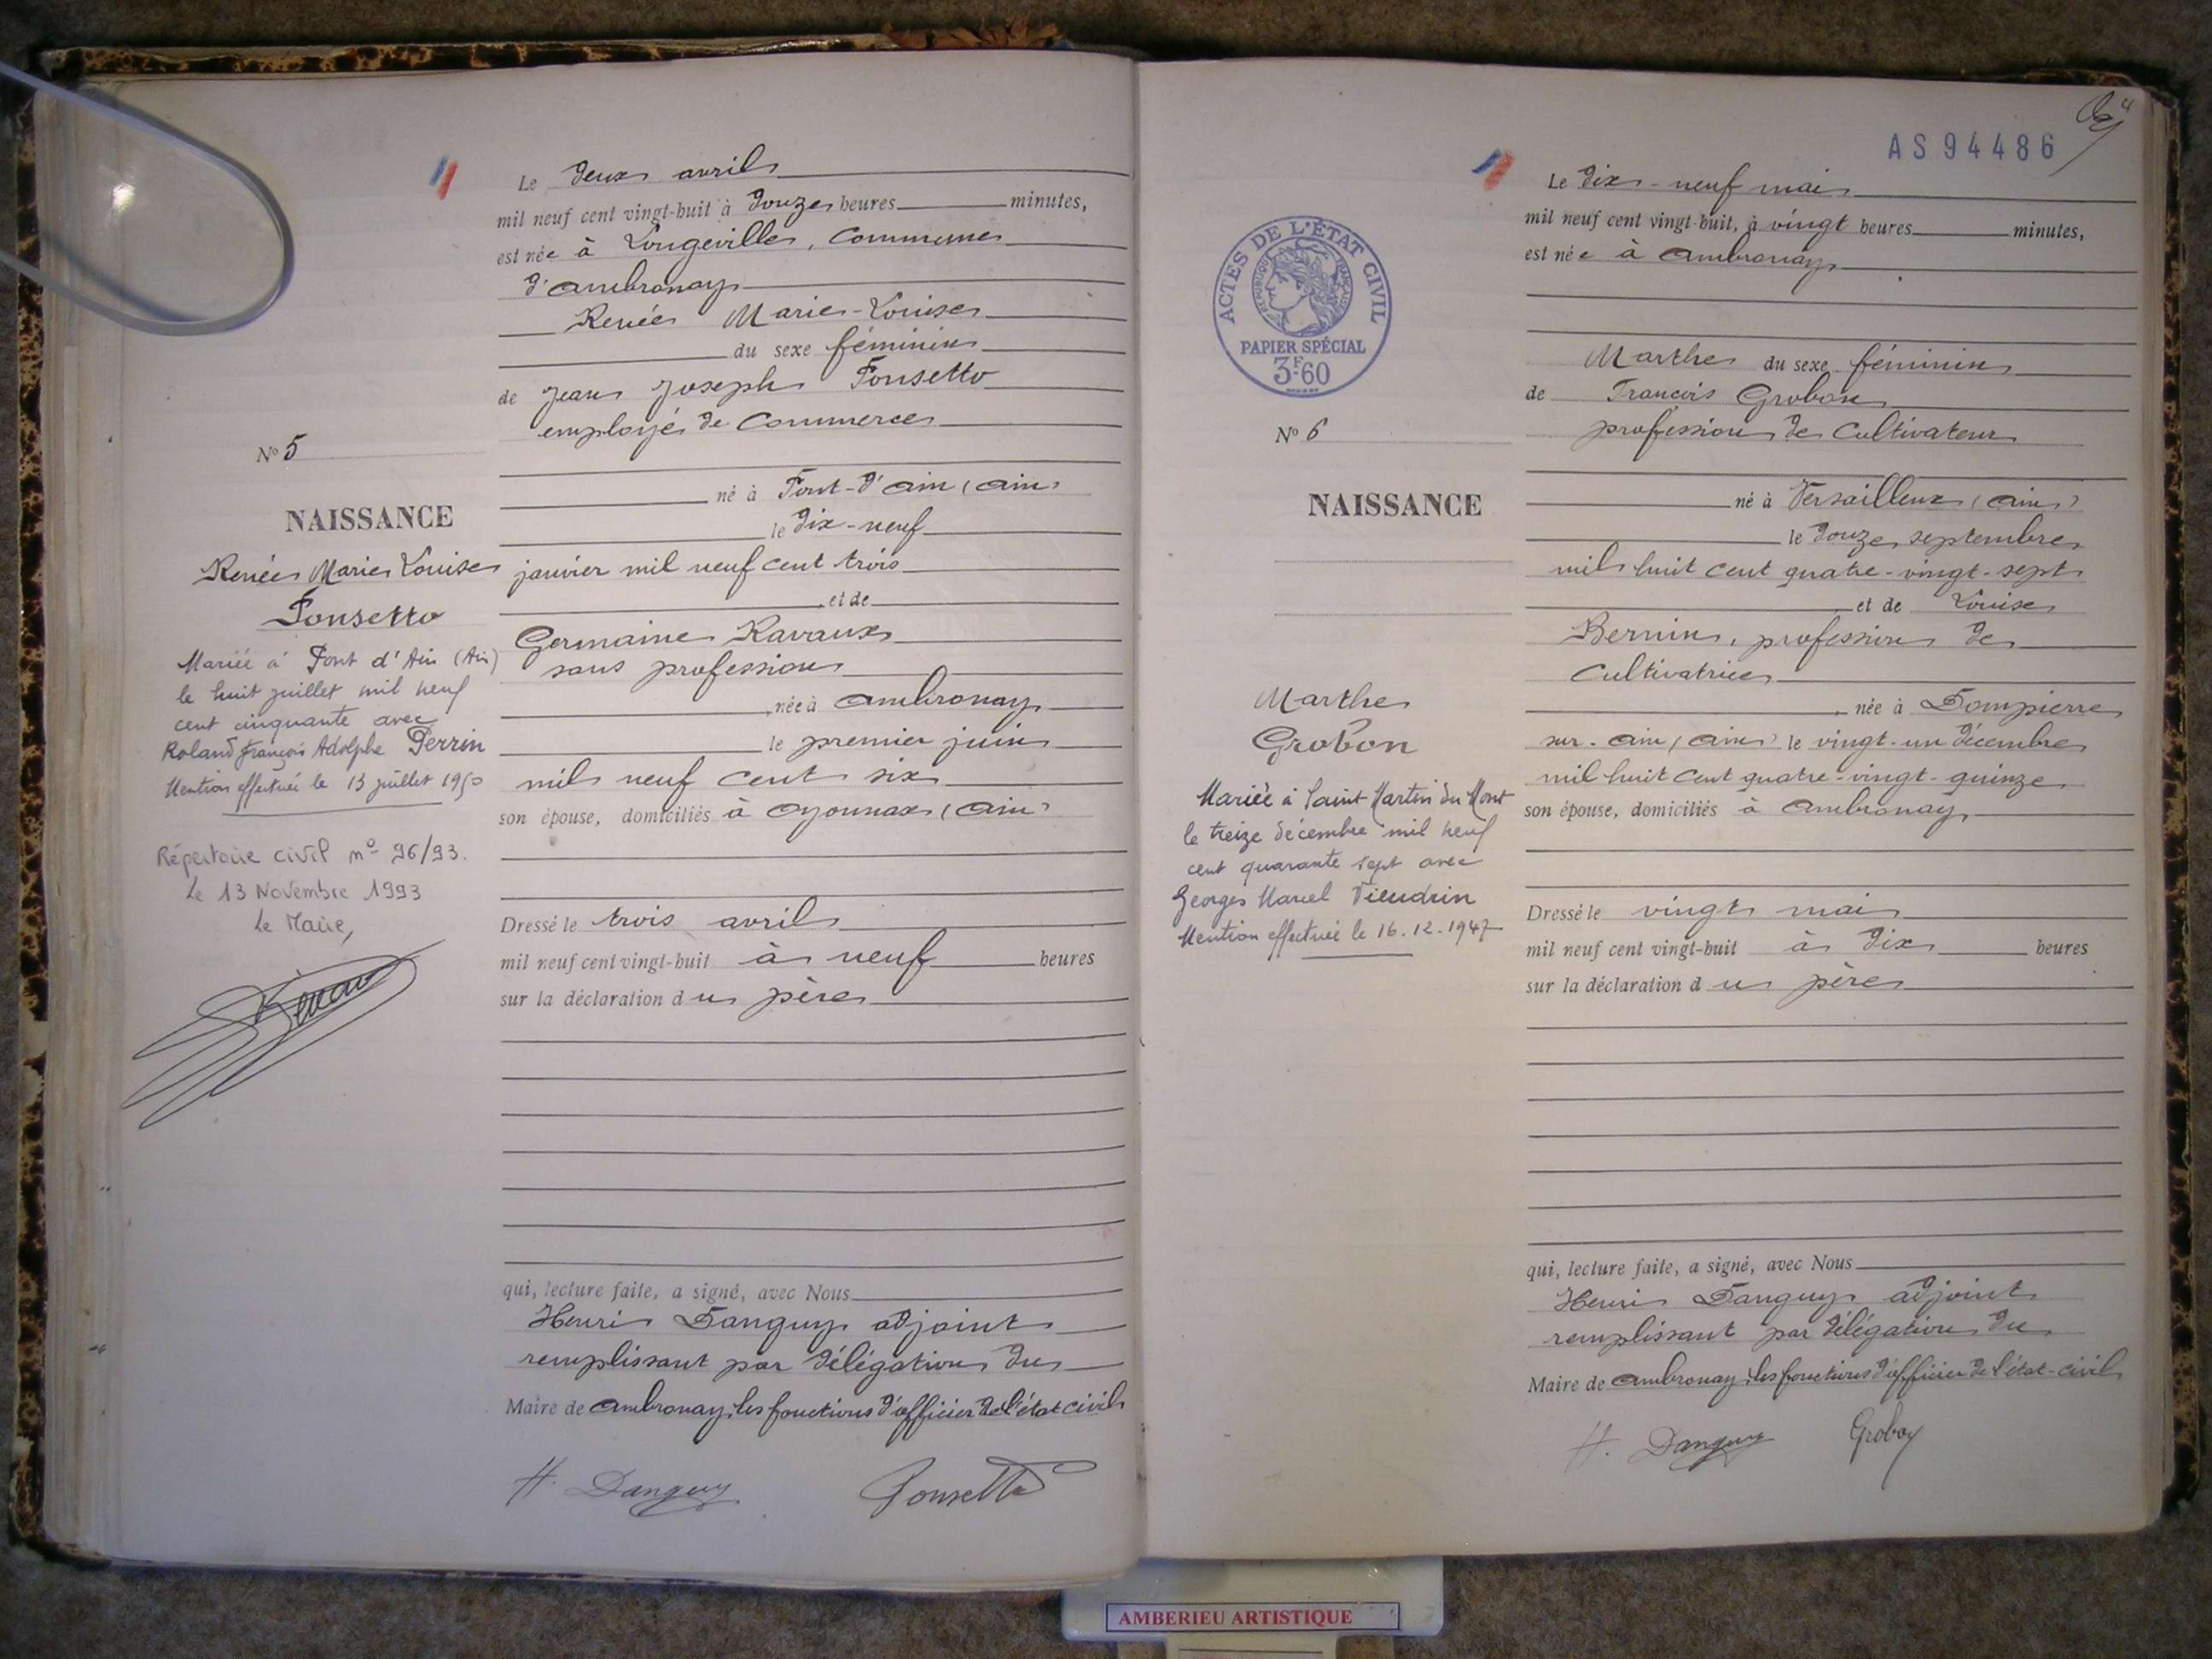 Le deux avril
mil neuf cent vingt-huit à douze heures minutes,
est née à Longeville, commune
d'ambronay
Renée Marie-Louise
du sexe féminin
de Jean Joseph Ponsetto
employé de commerce
né à Pont-d'ain (ain)
le dix-neuf
janvier mil neuf cent trois
et de
Germaine Ravaux
sans profession
née à ambronay
le premier juin
mil neuf cent six
son épouse, domiciliés à oyonnax (ain)
Dressé le trois avril
mil neuf cent vingt-huit à neuf heures
sur la déclaration du père
qui, lecture faite, a signé, avec Nous
Henri Danguy adjoint
remplissant par délégation du
Maire de ambronay les fonctions d'officier de l'état civil
H. Danguy Ponsetto
No 5
NAISSANCE
Renée Marie Louise
Ponsetto
Mariée à Pont d'Ain (Ain)
le huit juillet mil neuf
cent cinquante avec
Roland François Adolphe Perrin
Mention effectuée le 13 juillet 1950
Répertoire civil n° 96/93.
Le 13 Novembre 1993
Le Maire,
AS94486
Le dix-neuf mai
mil neuf cent vingt-huit, à vingt heures minutes,
est née à ambronay
Marthe du sexe féminin
de François Grobon
profession de cultivateur
né à Versailleux (ain)
le douze septembre
mil huit cent quatre-vingt-sept
et de Louise
Bernin, profession de
cultivatrice
née à Dompierre
sur-ain (ain) le vingt-un décembre
mil huit cent quatre-vingt-quinze
son épouse, domiciliés à ambronay
Dressé le vingt mai
mil neuf cent vingt-huit à dix heures
sur la déclaration du père
qui, lecture faite, a signé, avec Nous
Henri Danguy adjoint
remplissant par délégation du
Maire de ambronay les fonctions d'officier de l'état-civil
H. Danguy Grobon
ACTES DE L'ÉTAT CIVIL
RÉPUBLIQUE FRANÇAISE
PAPIER SPÉCIAL
3F.60
No 6
NAISSANCE
Marthe
Grobon
Mariée à Saint Martin du Mont
le treize décembre mil neuf
cent quarante sept avec
Georges Marcel Vieudrin
Mention effectuée le 16.12.1947
AMBERIEU ARTISTIQUE